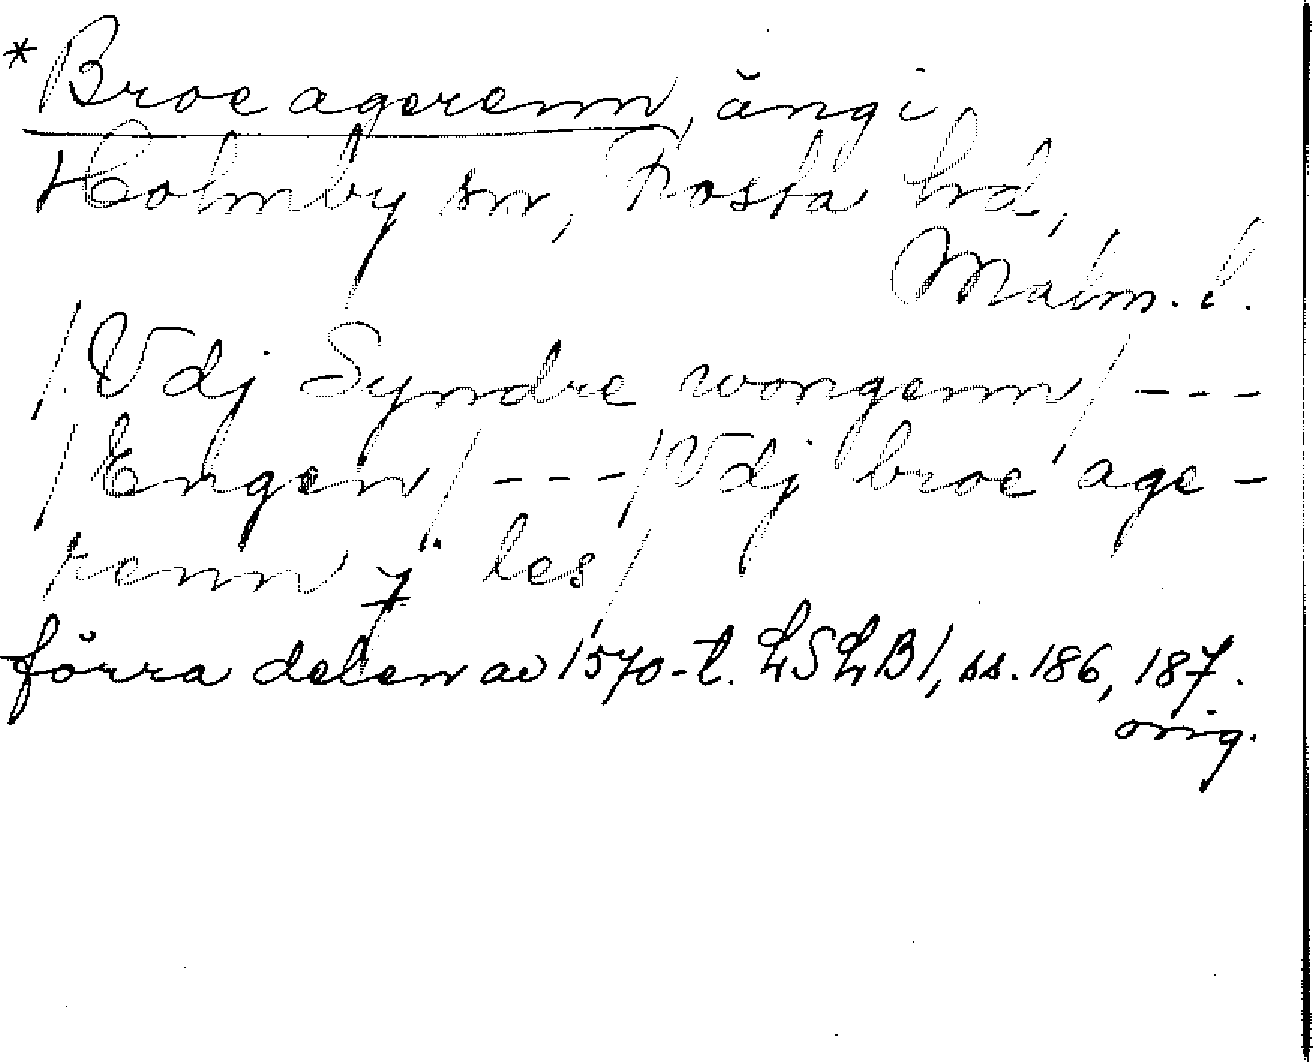 *Broe agerenn, äng i
Holmby sn, Frosta hd,
Malm. l.
/.Vdj Syndre wongenn/ ---
/Engen/ ---/Vdj broe age-
renn j" les/
förra delen av 1570-t. LSLB1, ss. 186, 187.
orig.